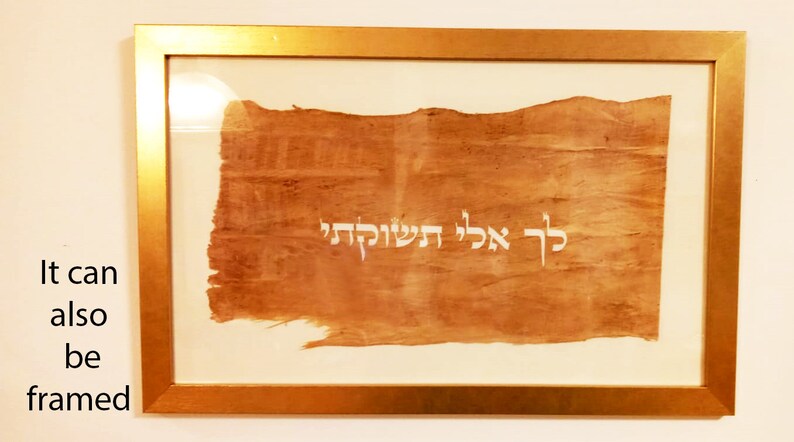 לך אלי תשוקתי
It can
also
be
framed